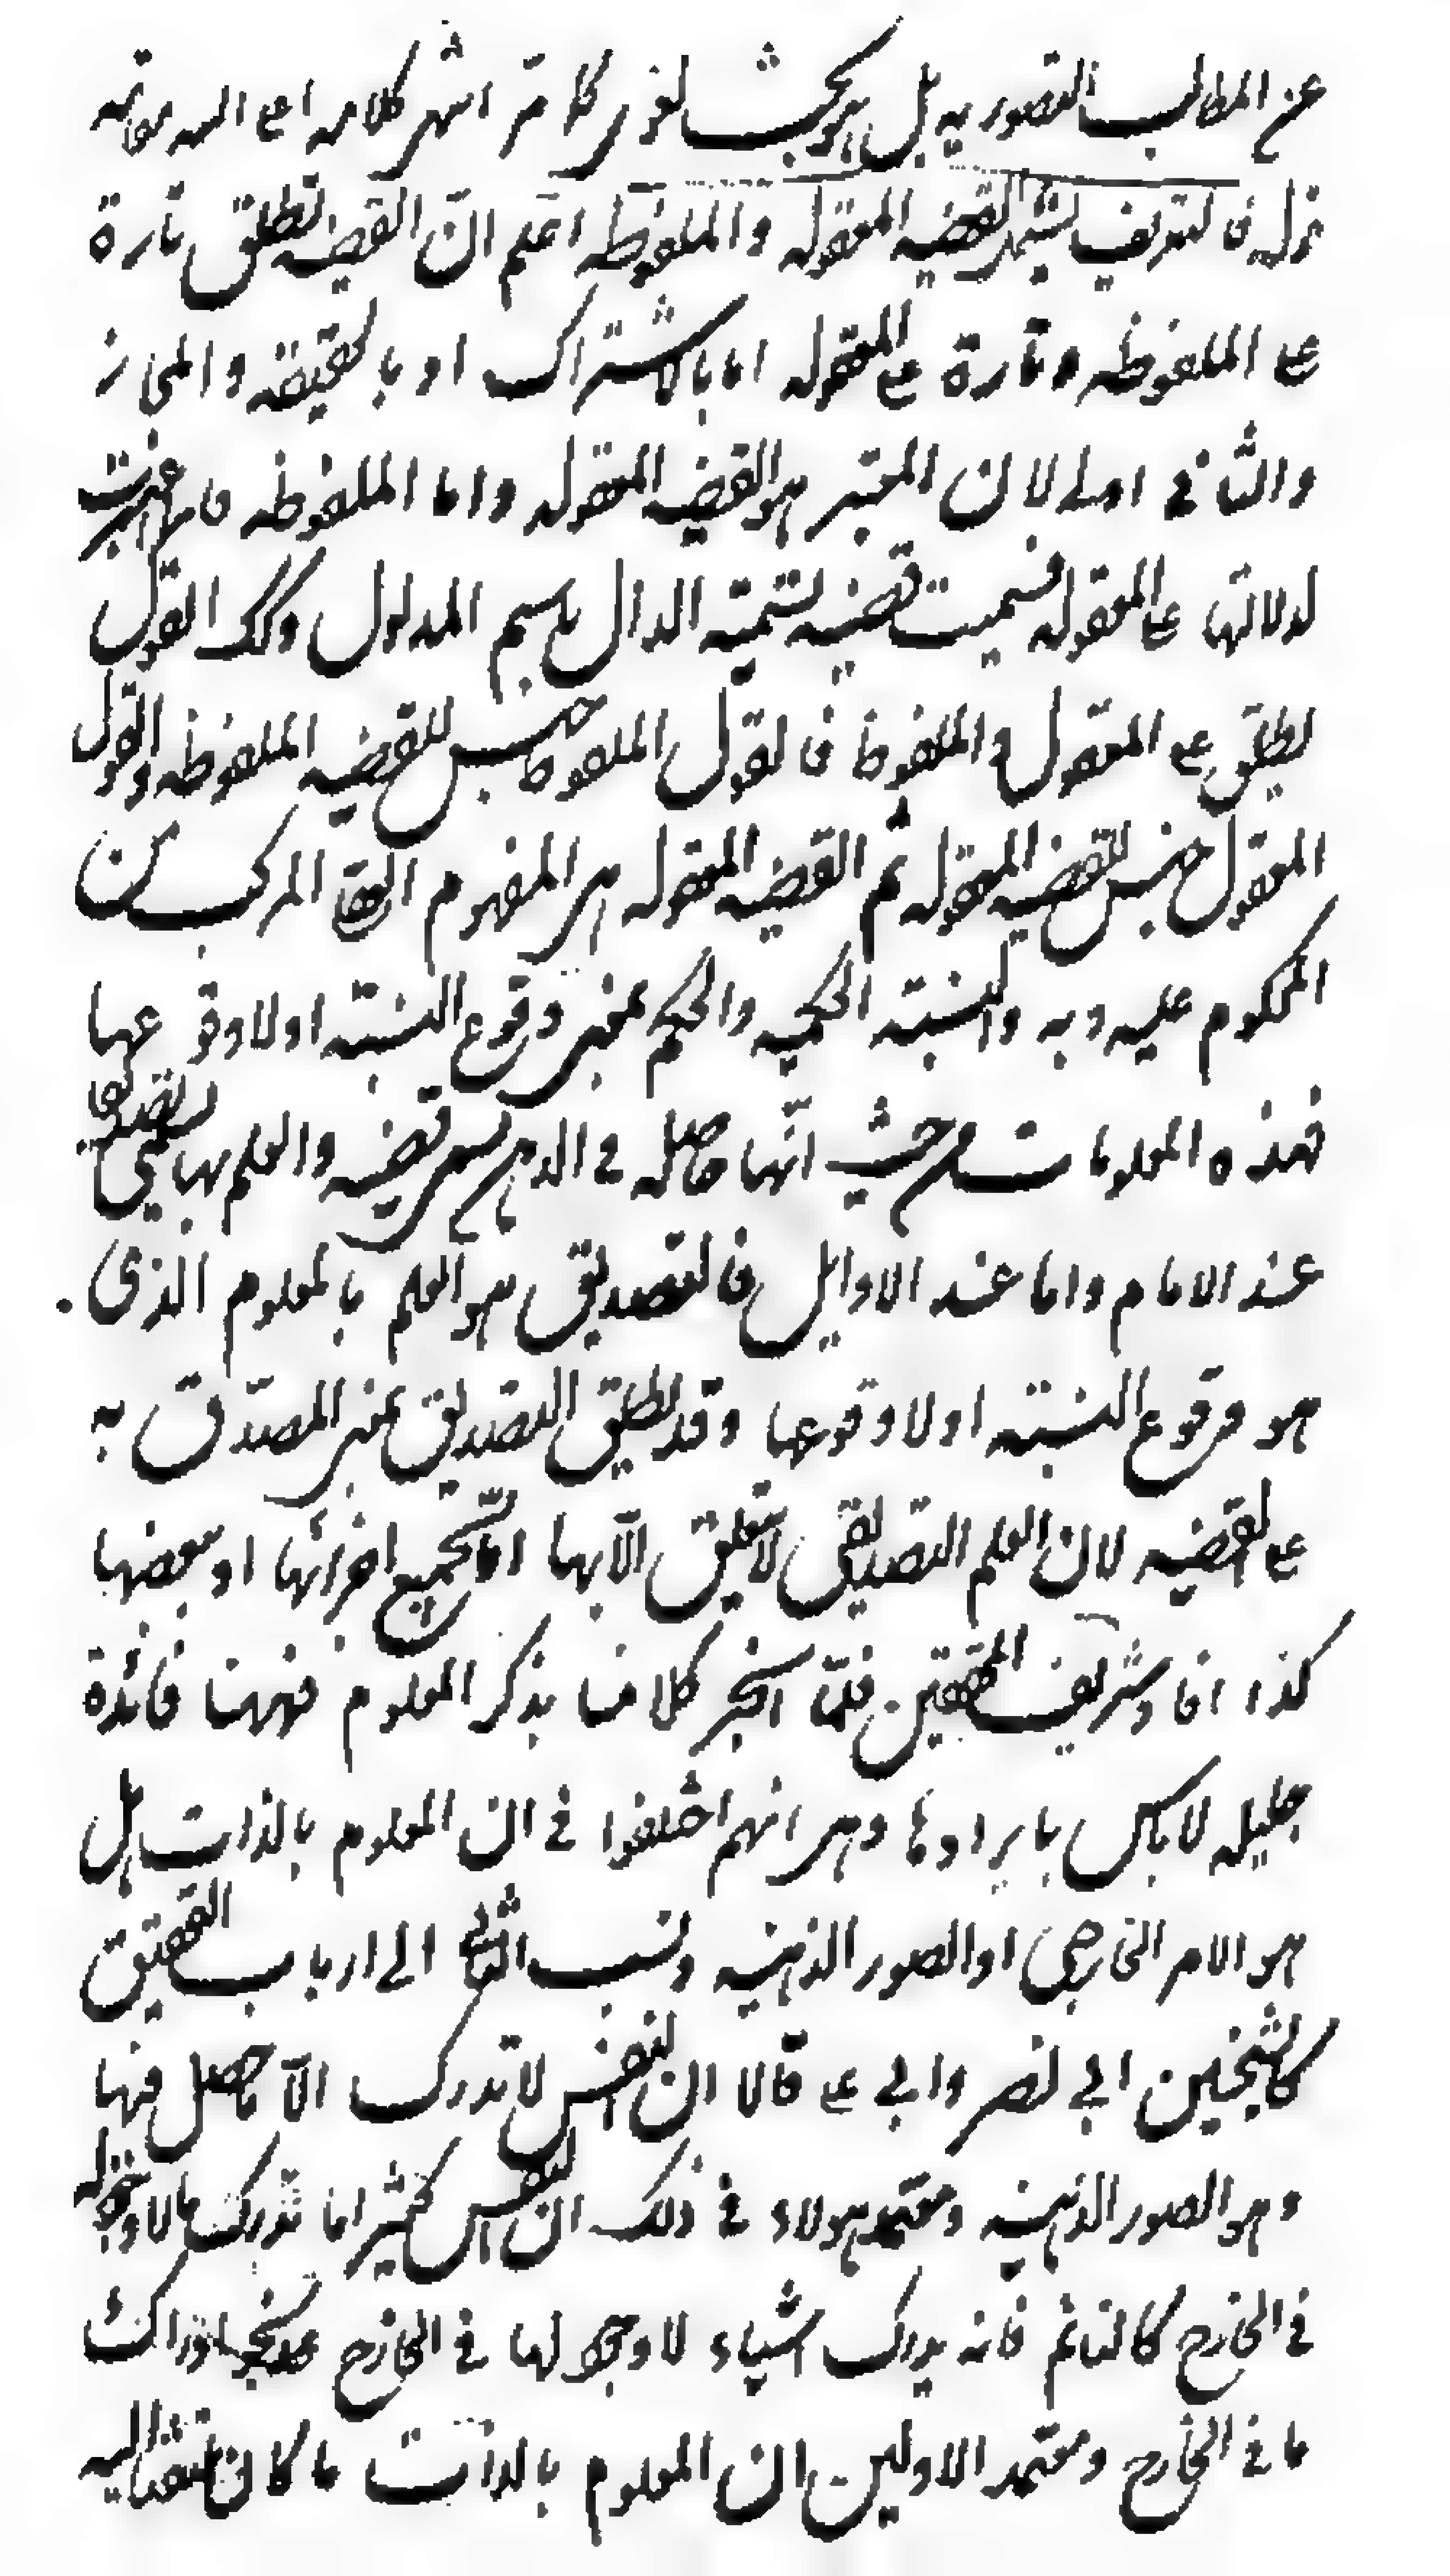 عن المطالب التصوريه بل هو بحث لغوى كما مر انتهى كلامه اعلى الله مقامه
قوله فالتعريف يشمل القضيه المعقوله والملفوظه اعلم انّ القضيه تطلق تارة
على الملفوظه وتارة على المعقوله اما بالاشتراك او بالحقيقه والمجاز
والثانى اولى لان المعتبر هو القضيه المعقوله واما الملفوظه فانما اعتبرت
لدلالتها على المعقوله فسميت قضيه تسمية الدال باسم المدلول وكك القول
يطلق على المعقول والملفوظ فالقول الملفوظ جنس للقضيه الملفوظه والقول
المعقول جنس للقضيه المعقوله ثم القضيه المعقوله هى المفهوم العقلى المركب من
المحكوم عليه وبه والنسبة الحكميه والحكم بمعنى وقوع النسبته اولا وقوعها
فهذه المعلومات من حيث انّها حاصله فى الذهن تسمى قضيه والعلم بها يسمى تصديقا
عند الامام واما عند الاوايل فالتصديق هو العلم بالمعلوم الذى
هو وقوع النسبته اولا وقوعها وقد يطلق التصديق بمعنى المصدّق به
على القضيه لان العلم التصديقى لا يتعلق الّا بها امّا بجميع اجزائها او ببعضها
كذا افاد شريف المحققين فلمّا انجر كلامنا بذكر المعلوم فههنا فائدة
جليله لا باس بايرادها وهى انهم اختلفوا فى ان المعلوم بالذات هل
هو الامر الخارجى او الصور الذهنيه ونسب الثانى الى ارباب التحقيق
كالشيخين ابى نصر وابى على قالا ان النفس لا تدرك الّا ما حصل فيها
وهو الصور الذهنيه ومعتمد هولاء فى ذلك ان النفس كثيرا ما تدرك ما لا وجود له
فى الخارج كالنائم فانه يدرك اشياء لا وجود لها فى الخارج
ما فى الخارج ومعتمد الاولين ان المعلوم بالذات ما كان ملتفتا اليه